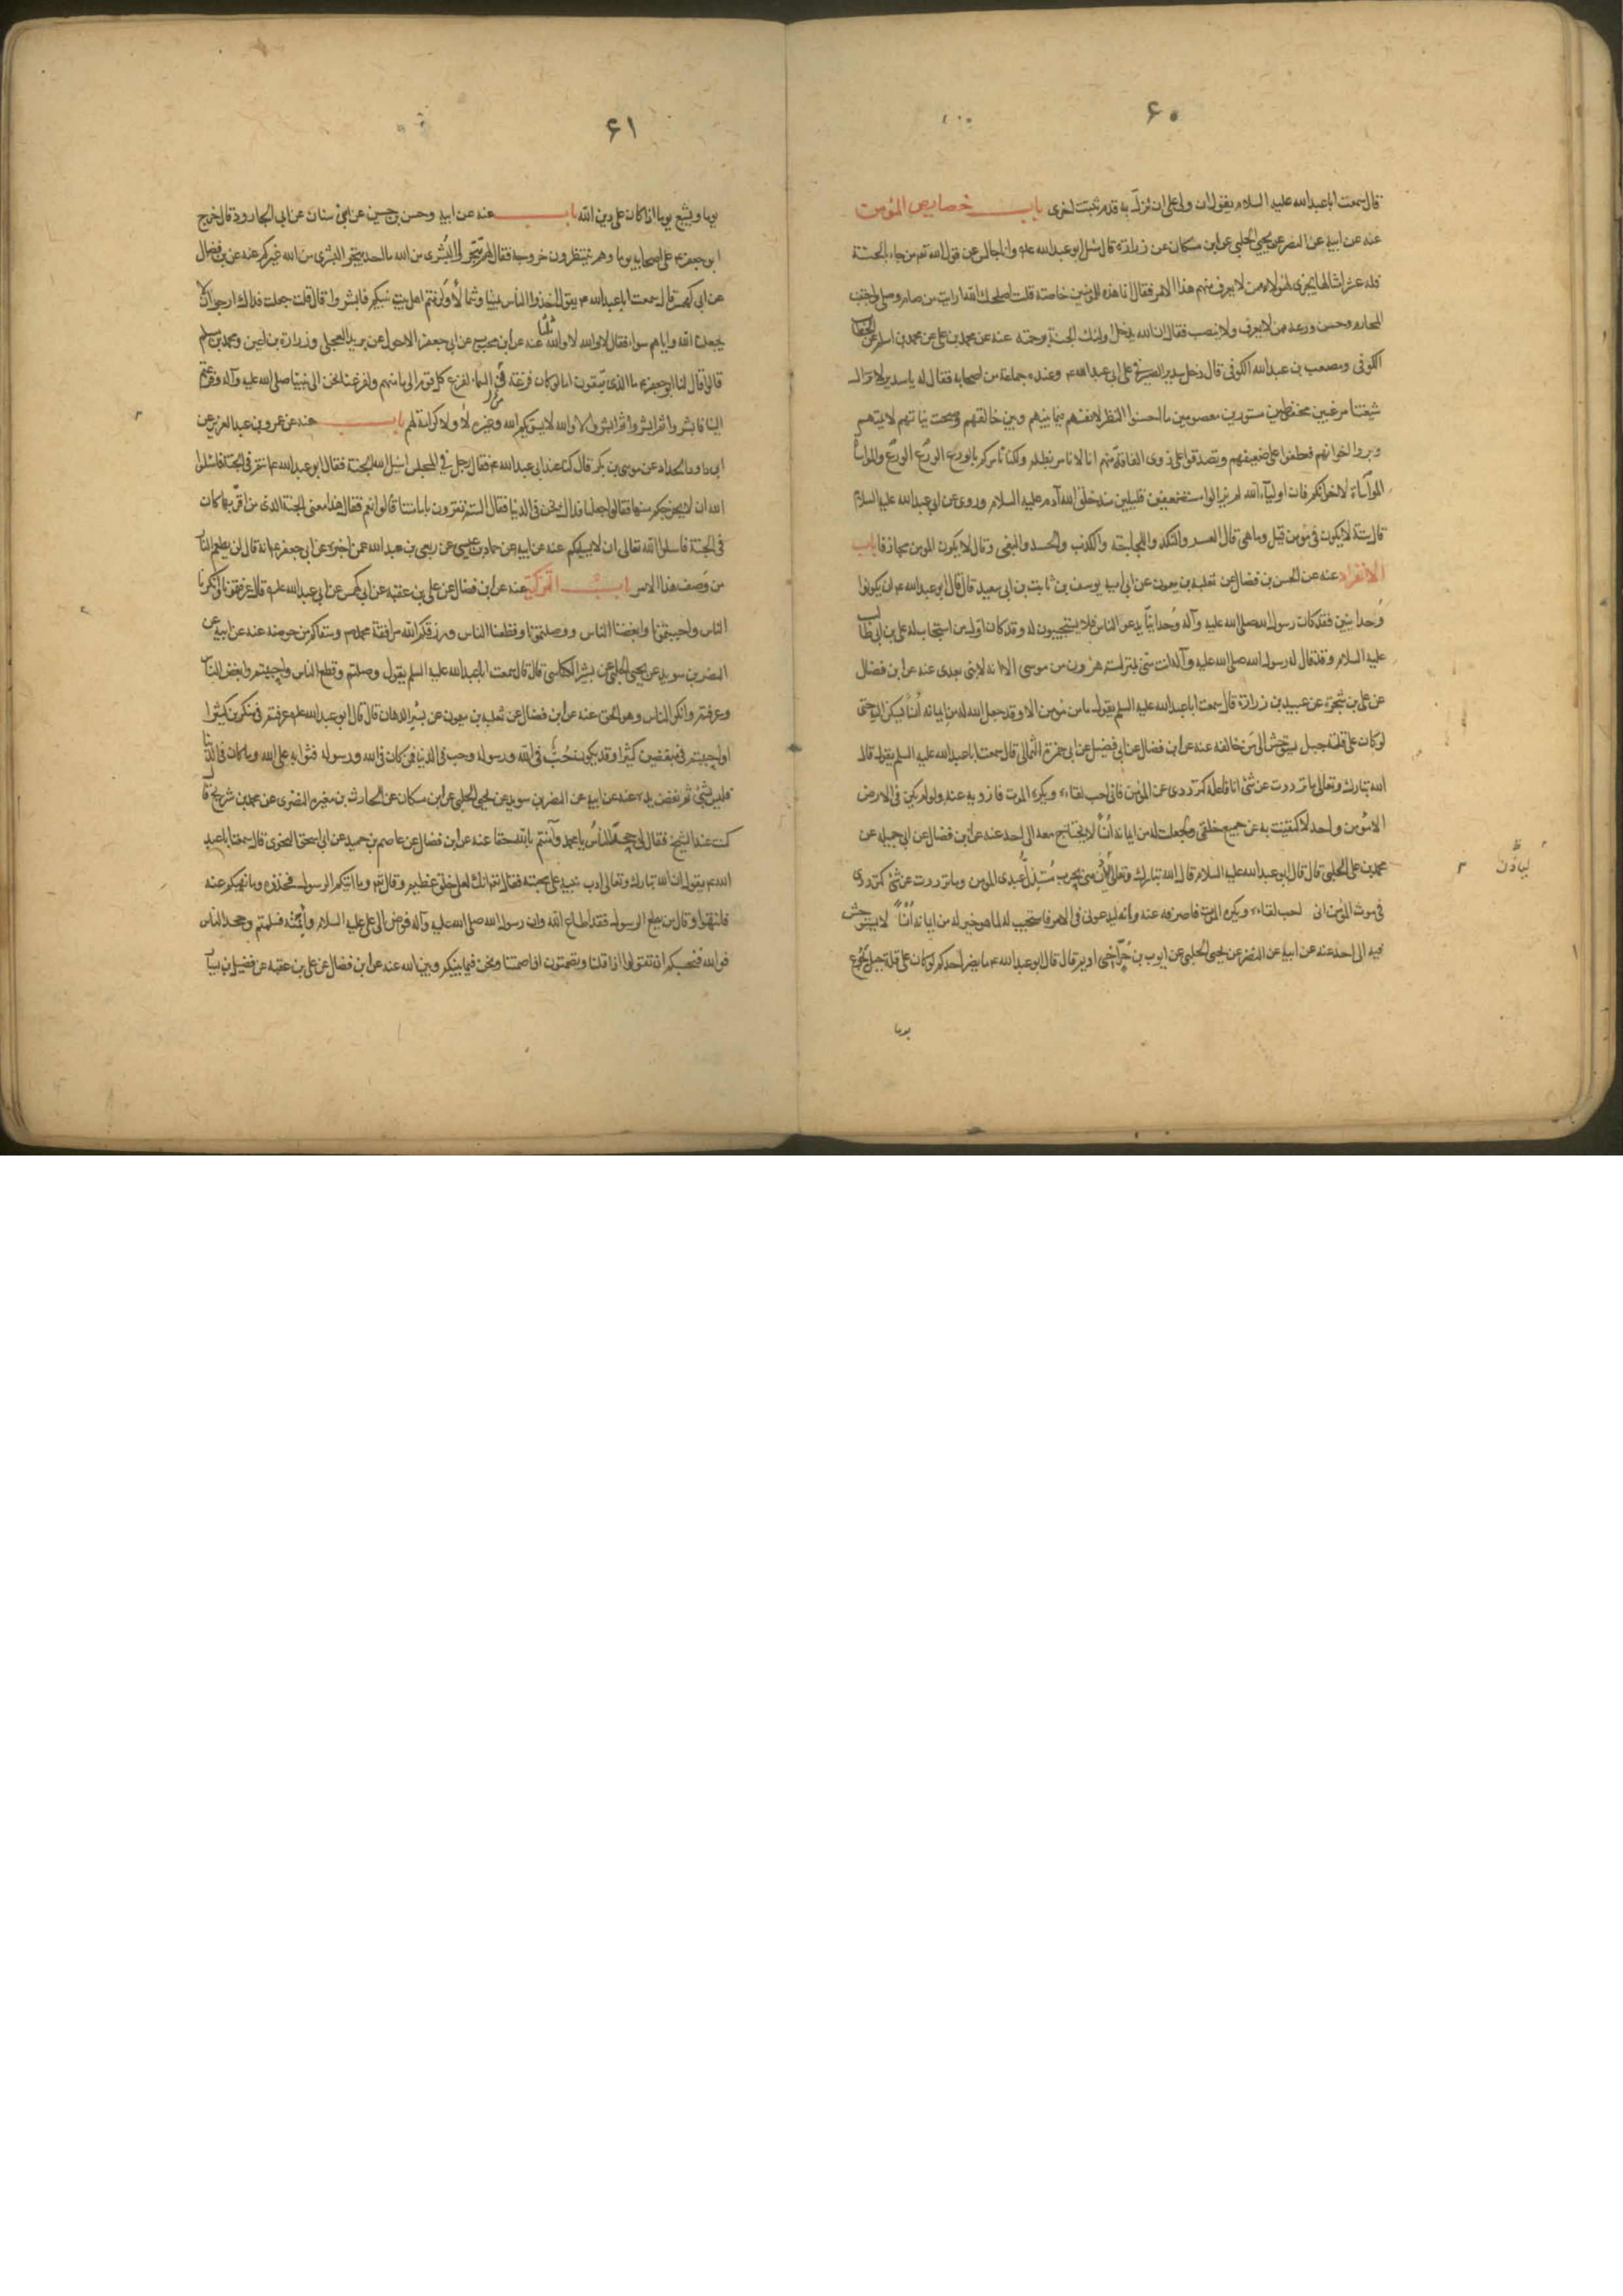 ۶۰
قال سمعت ابا عبد الله عليه السلام يقول ان ولى على ان نزلت به قدم تثبت اخرى باب خصايص المؤمن
عنه عن ابيه عن النضر عن يحيى الحلبي عن ابن مسكان عن زرارة قال سئل ابو عبد الله ع وانا جالس عن قول الله تع من جاء بالحسنة
فله عشر امثالها يجرى لهؤلاء ممن لا يعرف منهم هذا الامر فقال انما هذه للمؤمنين خاصة قلت اصلحك الله ارايت من صام وصلى واجتنب
المحارم وحسن ورعه ممن لا يعرف ولا ينصب فقال ان الله يدخل اولئك الجنة برحمته عنه عن محمد بن على عن محمد بن اسلم عن الخطاب
الكوفى ومصعب بن عبد الله الكوفى قال دخل سدير الصيرفى على ابى عبد الله ع وعنده جماعة من اصحابه فقال له يا سدير لا تزال
شيعتنا مرعيين محفوظين مستورين معصومين ما احسنوا النظر لانفسهم فيما بينهم وبين خالقهم وصحت نياتهم لائمتهم
وبروا اخوانهم فعطفوا على ضعيفهم وتصدقوا على ذوى الفاقة منهم انا لا نامر بظلم ولكنا نأمركم بالورع الورع الورع والمواساة
المواساة لاخوانكم فان اولياء الله لم يزالوا مستضعفين قليلين منذ خلق الله آدم عليه السلام وروى عن ابى عبد الله عليه السلام
قال ستة لا يكون فى مؤمن قيل وما هى قال العسر والنكد واللجاجة والكذب والحسد والبغى وقال لا يكون المومن مجازفا باب
الانفراد عنه عن الحسن بن فضال عن ثعلبة بن ميمون عن ابى امية يوسف بن ثابت بن ابى سعيد قال قال ابو عبد الله ع ان يكونوا
وحدانيين فقد كان رسول الله صلى الله عليه وآله وحدانيا يدعو الناس فلا يستجيبون له وقد كان اول من استجاب له على بن ابى طالب
عليه السلام وقد قال له رسول الله صلى الله عليه وآله انت منى بمنزلة هرون من موسى الا انه لا نبى بعدى عنه عن ابن فضال
عن على بن شجرة عن عبيد بن زرارة قال سمعت ابا عبد الله عليه السلم يقول ما من مؤمن الا وقد جعل الله له من ايمانه انسا يسكن اليه حتى
لو كان على قلة جبل يستوحش الى من خالفه عنه عن ابن فضال عن ابى فضيل عن ابى حمزة الثمالى قال سمعت ابا عبد الله عليه السلم يقول قال
الله تبارك وتعالى ما ترددت عن شئ انا فاعله كترددى عن المؤمن فانى احب لقاءه ويكره الموت فازويه عنه ولو لم يكن فى الارض
الا مؤمن واحد لاكتفيت به عن جميع خلقى وجعلت له من ايمانه انسا لا يحتاج معه الى احد عنه عن ابن فضال عن ابى جميلة عن
محمد بن على الحلبى قال قال ابو عبد الله عليه السلام قال الله تبارك وتعالى ليأذن منى بحرب مستذل عبدى المومن وما ترددت عن شئ كترددى
فى موت المؤمن انى لاحب لقاءه ويكره الموت فاصرفه عنه وانه ليدعونى فى الامر فاستجيب له لما هو خير له من ايمانه انسا لا يستوحش
فيه الى احد عنه عن ابيه عن النضر عن يحيى الحلبى عن ايوب بن حر اخى اديم قال قال ابو عبد الله ع ما يضر احدكم لو كان على قلة جبل يجوع
يوما
۶۱
يوما ويشبع يوما اذا كان على دين الله باب عنه عن ابيه وحسن بن حسين عن ابن سنان عن ابى الجارود قال خرج
ابو جعفر ع على اصحابه يوما وهم ينتظرون خروجه فقال لهم تنجزوا البشرى من الله ما احد يتنجز البشرى من الله غيركم عنه عن بن فضال
عن ابى كهمس قال سمعت ابا عبد الله ع يقول اخذ الناس يمينا وشمالا ولزمتم اهل بيت نبيكم فابشروا قال قلت جعلت فداك ارجو ان لا
يجعلنا الله واياهم سواء فقال لا والله لا والله ثلثا عنه عن ابن محبوب عن ابى جعفر الاحول عن بريد العجلى وزرارة بن اعين ومحمد بن مسلم
قالوا قال لنا ابو جعفر ع ما الذى تبغون اما لو كان فزعة من السماء لفزع كل قوم الى مأمنهم ولفزعنا نحن الى نبينا صلى الله عليه وآله وفزعتم
الينا فابشروا ثم ابشروا ثم ابشروا لا والله لا يسويكم الله وغيركم لا ولا كرامة لهم باب عنه عن عمرو بن عبد العزيز عن
ابى داود الحداد عن موسى بن بكر قال كنا عند ابى عبد الله ع فقال رجل فى المجلس اسئل الله الجنة فقال ابو عبد الله ع انتم فى الجنة فاسئلوا
الله ان لا يخرجكم منها فقالوا جعلنا فداك نحن فى الدنيا فقال الستم تقرون بامامتنا قالوا نعم فقال هذا معنى الجنة الذى من اقر بها كان
فى الجنة فاسئلوا الله تعالى ان لا يسلبكم عنه عن ابيه عن حماد بن عيسى عن ربعى بن عبد الله عمن اخبره عن ابى جعفر ع انه قال لن يطعم النار
من وصف هذا الامر باب التزكية عنه عن ابن فضال عن على بن عقبة عن ابى كهمس عن ابى عبد الله ع قال عرفتمونا وانكرنا
الناس واحببتمونا وابغضنا الناس ووصلتمونا وقطعنا الناس ورزقكم الله مرافقة محمد ص وسقاكم من حوضه عنه عن ابيه عن
النضر بن سويد عن يحيى الحلبى عن بشير الكناسى قال سمعت ابا عبد الله عليه السلم يقول وصلتم وقطع الناس واحببتم وابغض الناس
وعرفتم وانكر الناس وهو الحق عنه عن ابن فضال عن ثعلبة بن ميمون عن بشير الدهان قال قال ابو عبد الله ع عرفتم فى منكرين كثيرا
واحببتم فى مبغضين كثيرا وقد يكون حب فى الله ورسوله وحب فى الدنيا فما كان فى الله ورسوله فثوابه على الله وما كان فى الدنيا
فليس بشئ ثم نفض يده عنه عن ابيه عن النضر بن سويد عن يحيى الحلبى عن ابن مسكان عن الحارث بن مغيرة النضرى عن محمد بن شريح قال
كنت عند الشيخ فقال لى جحد الناس يا محمد وآمنتم بالله حقا عنه عن ابن فضال عن عاصم بن حميد عن ابى اسحق النحوى قال سمعت ابا عبد
الله ع يقول ان الله تبارك وتعالى ادب نبيه على محبته فقال انك لعلى خلق عظيم وقال تع وما اتيكم الرسول فخذوه وما نهيكم عنه
فانتهوا وقال من يطع الرسول فقد اطاع الله وان رسول الله صلى الله عليه وآله فوض الى على عليه السلام وائتمنه فسلمتم وجحد الناس
فوالله فنحبكم ان تقولوا اذا قلنا وتصمتوا اذا صمتنا ونحن فيما بينكم وبين الله عنه عن ابن فضال عن على بن عقبة عن فضيل بن يسار